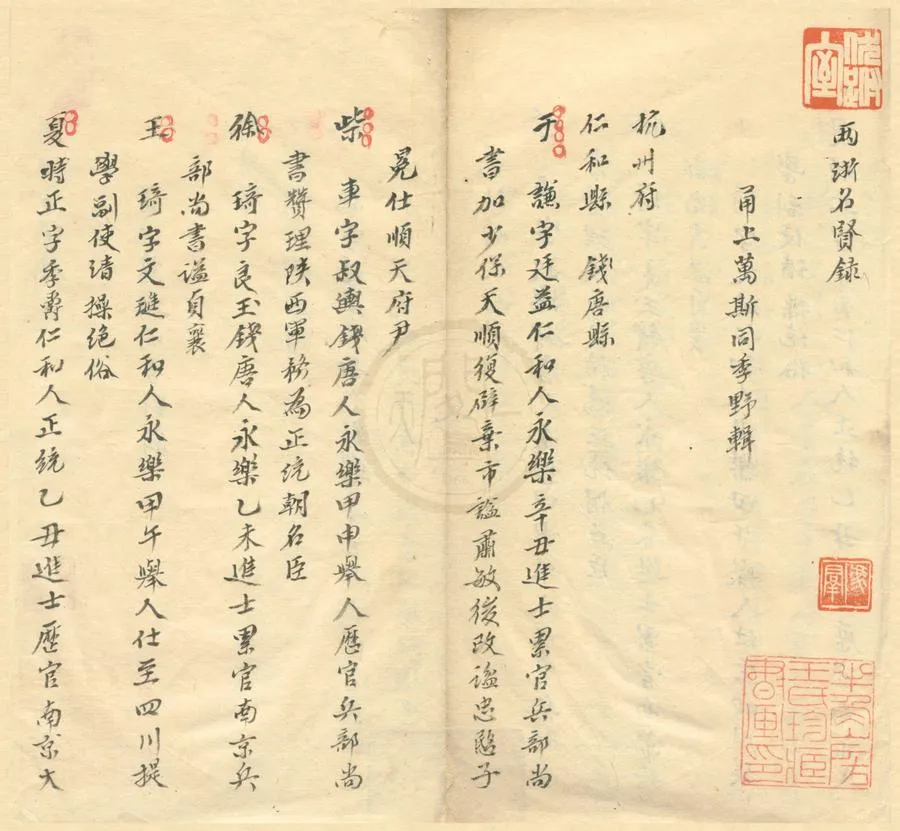 兩浙名賢錄
甬上萬斯同季野輯
杭州府
仁和縣 錢唐縣
于 謙字廷益仁和人永樂辛丑進士累官兵部尚
書加少保天順復辟棄市謚肅敏後改謚忠愍子
冕仕順天府尹
柴 車字叔輿錢唐人永樂甲申舉人歷官兵部尚
書贊理陝西軍務為正統朝名臣
徐 琦字良玉錢唐人永樂乙未進士累官南京兵
部尚書謚貞襄
王 琦字文璡仁和人永樂甲午舉人仕至四川提
學副使清操絶俗
夏時正字季爵仁和人正統乙丑進士歷官南京大